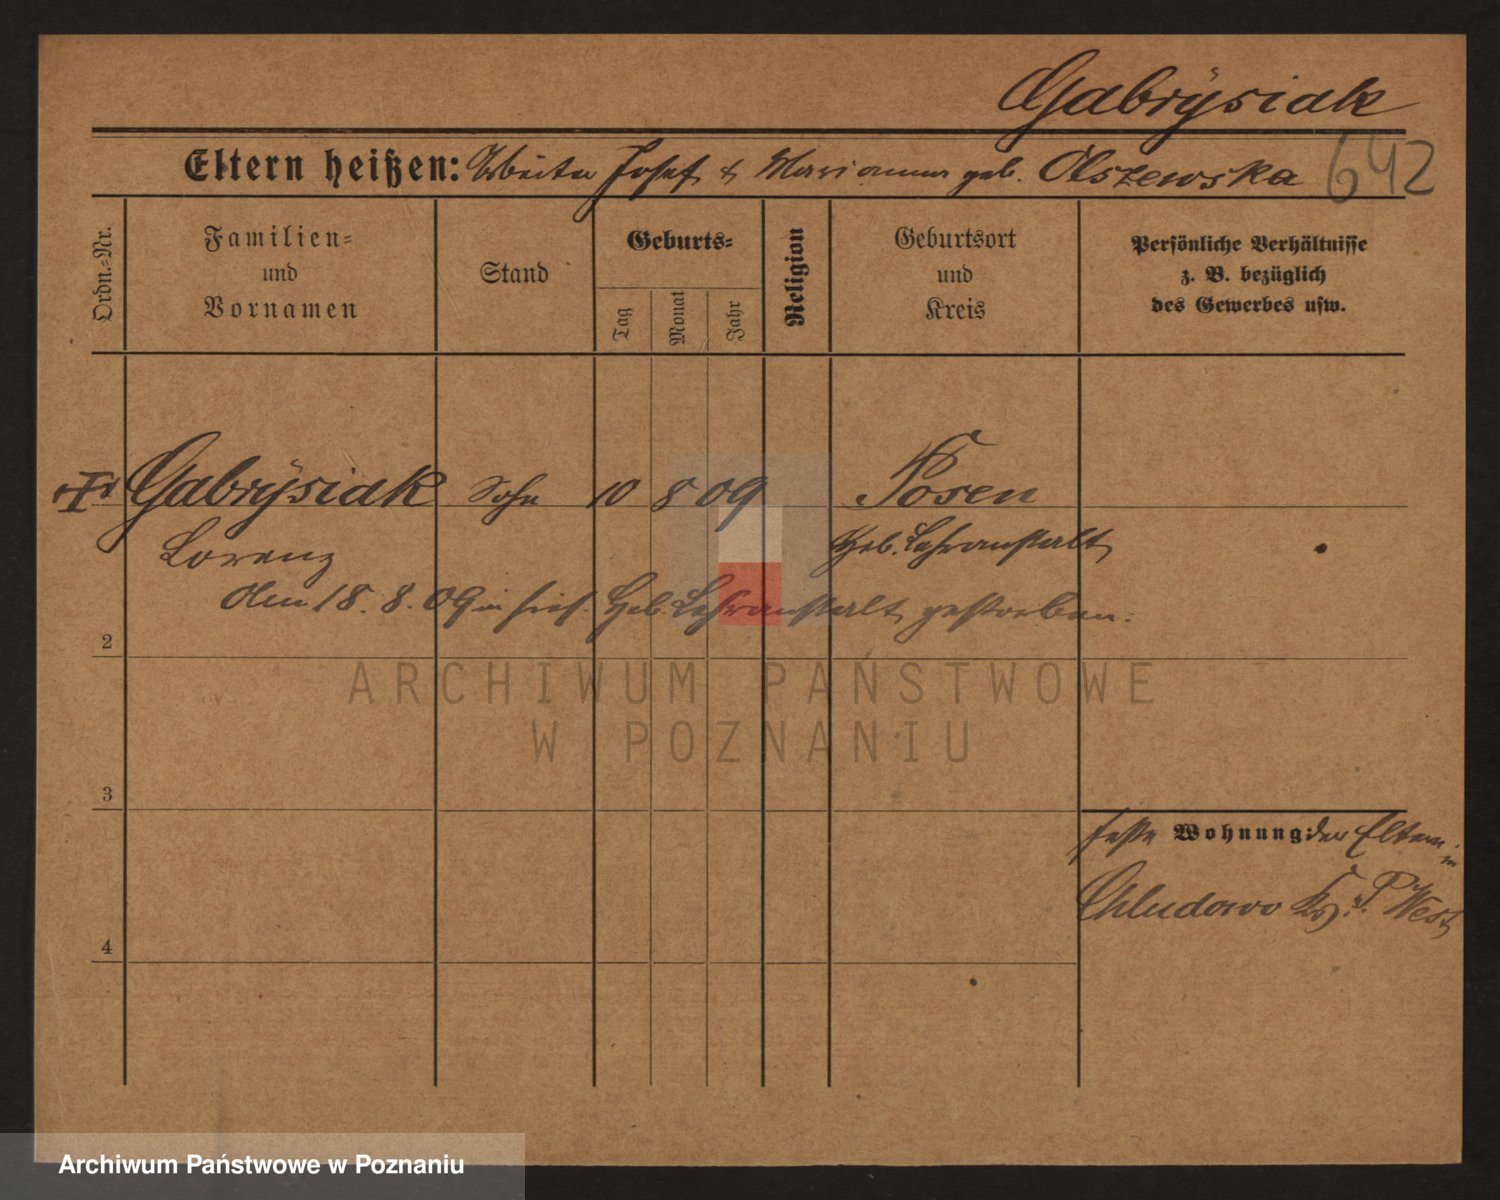 Gabrÿsiak
Eltern heißen: Arbeiter Josef & Marianna geb. Olszewska 642
Ordn.-Nr.
Familien-
und
Vornamen
Stand
Geburts-
Tag
Monat
Jahr
Religion
Geburtsort
und
Kreis
Persönliche Verhältnisse
z. B. bezüglich
des Gewerbes usw.
Gabrÿsiak Sohn 10 8 09 Posen
Lorenz Heb. Lehranstalt
den 18. 8. 09 in hies. Heb. Lehranstalt gestorben.
2
3
4
feste Wohnung: der Eltern: in
Chludowo Krs. P. West
ARCHIWUM PAŃSTWOWE
W POZNANIU
Archiwum Państwowe w Poznaniu